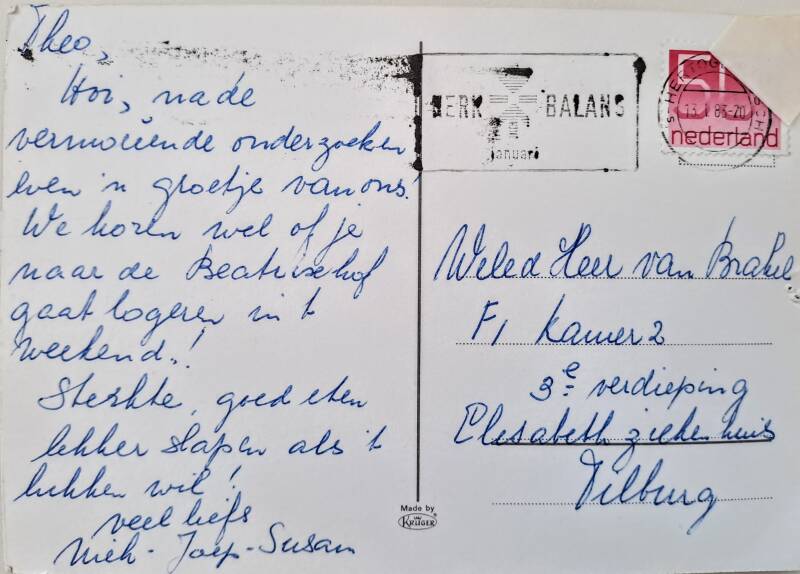 Theo,
Hoi, na de
vermoeiende onderzoeken
even 'n groetje van ons!
We horen wel of je
naar de Beatrixhof
gaat logeren in 't
weekend.!
Sterkte, goed eten
lekker slapen als 't
lukken wil!
veel liefs
Joep - Susan
KERK BALANS
januari
13.1.83-20
nederland
Weled Heer van Brakel
F1 Kamer 2
3e verdieping
Elisabeth ziekenhuis
Tilburg
Made by
KRÜGER